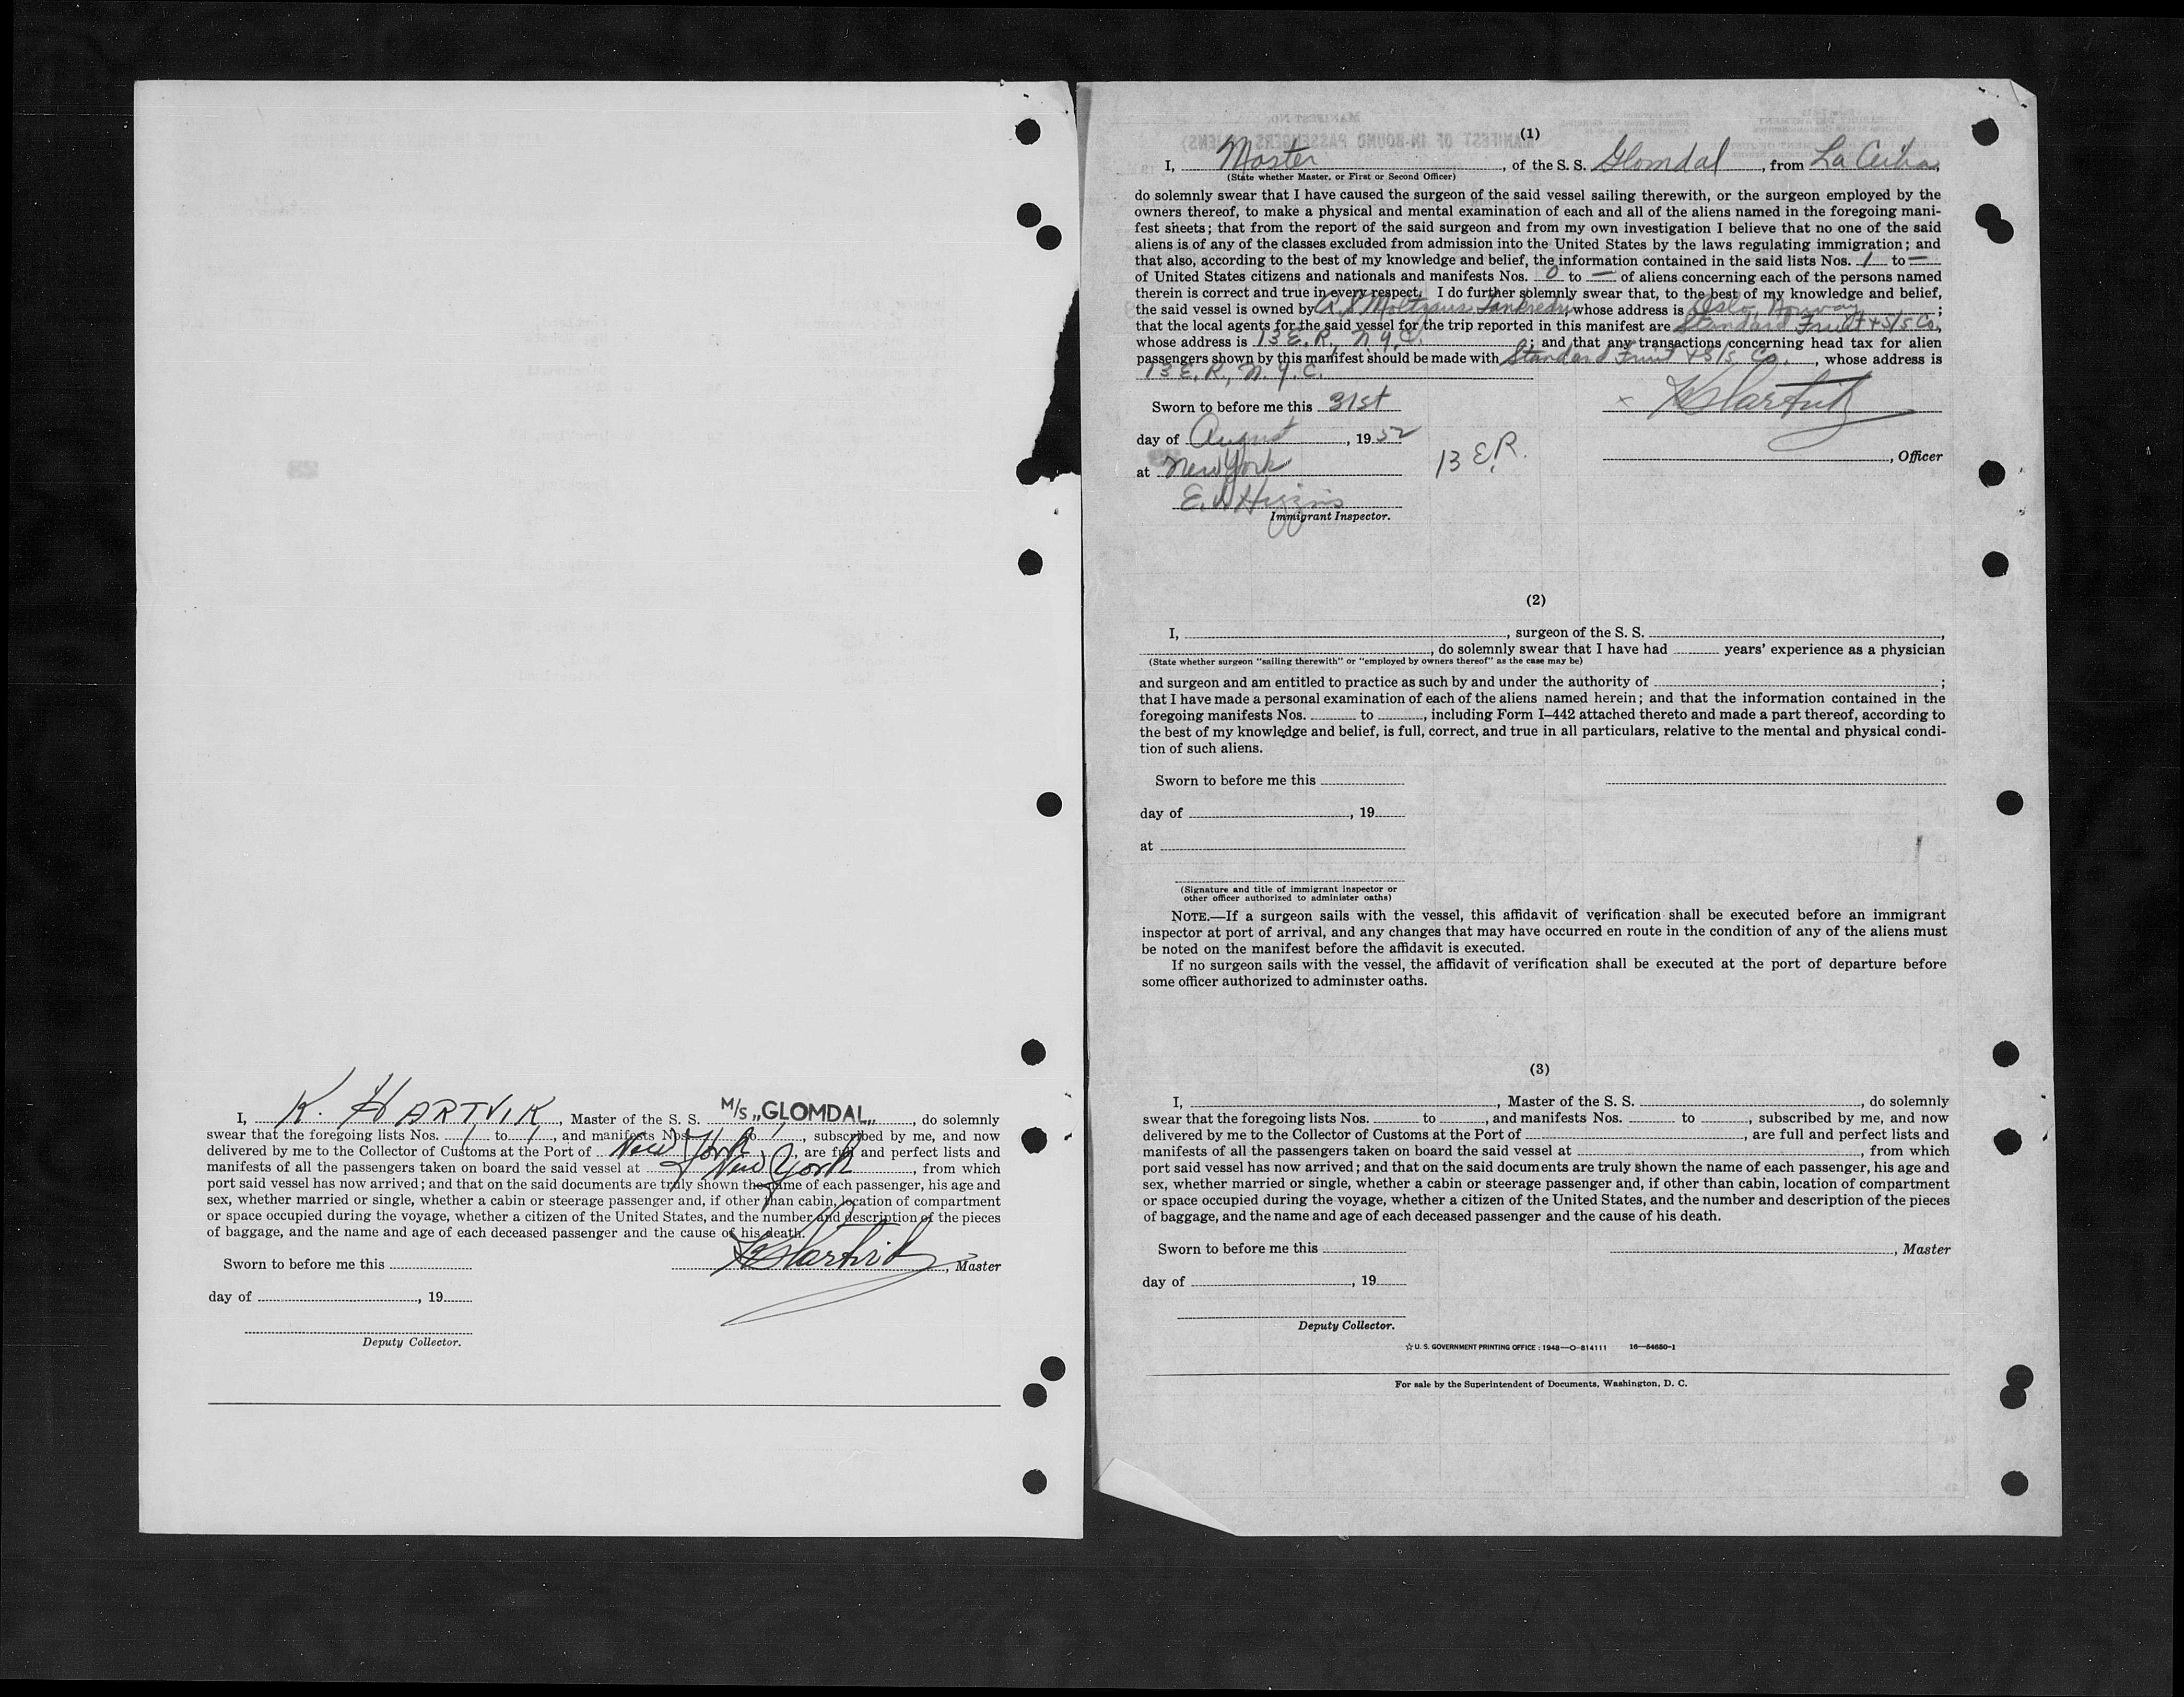 I, K. HARTVIK, Master of the S. S. M/S „GLOMDAL„, do solemnly
swear that the foregoing lists Nos. 1 to 1, and manifests Nos. to 1, subscribed by me, and now
delivered by me to the Collector of Customs at the Port of New York, are full and perfect lists and
manifests of all the passengers taken on board the said vessel at New York, from which
port said vessel has now arrived; and that on the said documents are truly shown the name of each passenger, his age and
sex, whether married or single, whether a cabin or steerage passenger and, if other than cabin, location of compartment
or space occupied during the voyage, whether a citizen of the United States, and the number and description of the pieces
of baggage, and the name and age of each deceased passenger and the cause of his death.
Sworn to before me this
K Hartvik, Master
day of , 19
Deputy Collector.
(1)
I, Master, of the S. S. Glomdal, from La Ceiba,
(State whether Master, or First or Second Officer)
do solemnly swear that I have caused the surgeon of the said vessel sailing therewith, or the surgeon employed by the
owners thereof, to make a physical and mental examination of each and all of the aliens named in the foregoing mani-
fest sheets; that from the report of the said surgeon and from my own investigation I believe that no one of the said
aliens is of any of the classes excluded from admission into the United States by the laws regulating immigration; and
that also, according to the best of my knowledge and belief, the information contained in the said lists Nos. 1 to —
of United States citizens and nationals and manifests Nos. 0 to — of aliens concerning each of the persons named
therein is correct and true in every respect. I do further solemnly swear that, to the best of my knowledge and belief,
the said vessel is owned by A/S Moltzaus Tankrederi, whose address is Oslo, Norway;
that the local agents for the said vessel for the trip reported in this manifest are Standard Fruit + S/S Co,
whose address is 13 E. R., N.Y.C.; and that any transactions concerning head tax for alien
passengers shown by this manifest should be made with Standard Fruit + S/s. Co., whose address is
13 E. R., N. Y. C.
Sworn to before me this 31st
x K Hartvik
day of August, 1952
13 E.R.
, Officer
at New York
E. W Higgins
Immigrant Inspector.
(2)
I, , surgeon of the S. S. ,
, do solemnly swear that I have had years' experience as a physician
(State whether surgeon "sailing therewith" or "employed by owners thereof" as the case may be)
and surgeon and am entitled to practice as such by and under the authority of ;
that I have made a personal examination of each of the aliens named herein; and that the information contained in the
foregoing manifests Nos. to , including Form I–442 attached thereto and made a part thereof, according to
the best of my knowledge and belief, is full, correct, and true in all particulars, relative to the mental and physical condi-
tion of such aliens.
Sworn to before me this
day of , 19
at
(Signature and title of immigrant inspector or
other officer authorized to administer oaths)
NOTE.—If a surgeon sails with the vessel, this affidavit of verification shall be executed before an immigrant
inspector at port of arrival, and any changes that may have occurred en route in the condition of any of the aliens must
be noted on the manifest before the affidavit is executed.
If no surgeon sails with the vessel, the affidavit of verification shall be executed at the port of departure before
some officer authorized to administer oaths.
(3)
I, , Master of the S. S. , do solemnly
swear that the foregoing lists Nos. to , and manifests Nos. to , subscribed by me, and now
delivered by me to the Collector of Customs at the Port of , are full and perfect lists and
manifests of all the passengers taken on board the said vessel at , from which
port said vessel has now arrived; and that on the said documents are truly shown the name of each passenger, his age and
sex, whether married or single, whether a cabin or steerage passenger and, if other than cabin, location of compartment
or space occupied during the voyage, whether a citizen of the United States, and the number and description of the pieces
of baggage, and the name and age of each deceased passenger and the cause of his death.
Sworn to before me this
, Master
day of , 19
Deputy Collector.
☆ U. S. GOVERNMENT PRINTING OFFICE : 1948—O–814111 16—54650–1
For sale by the Superintendent of Documents, Washington, D. C.